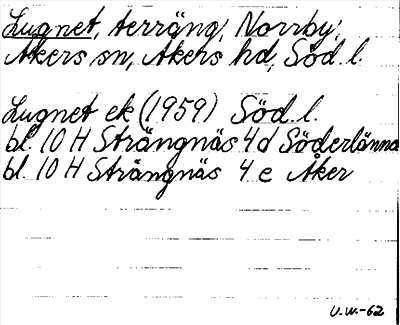 Lugnet, terräng, Norrby,
Åkers sn, Åkers hd, Söd. l.
Lugnet ek (1959) Söd. l.
bl. 10 H Strängnäs 4 d Söderlänna
bl. 10 H Strängnäs 4 e Åker
U.W.-62